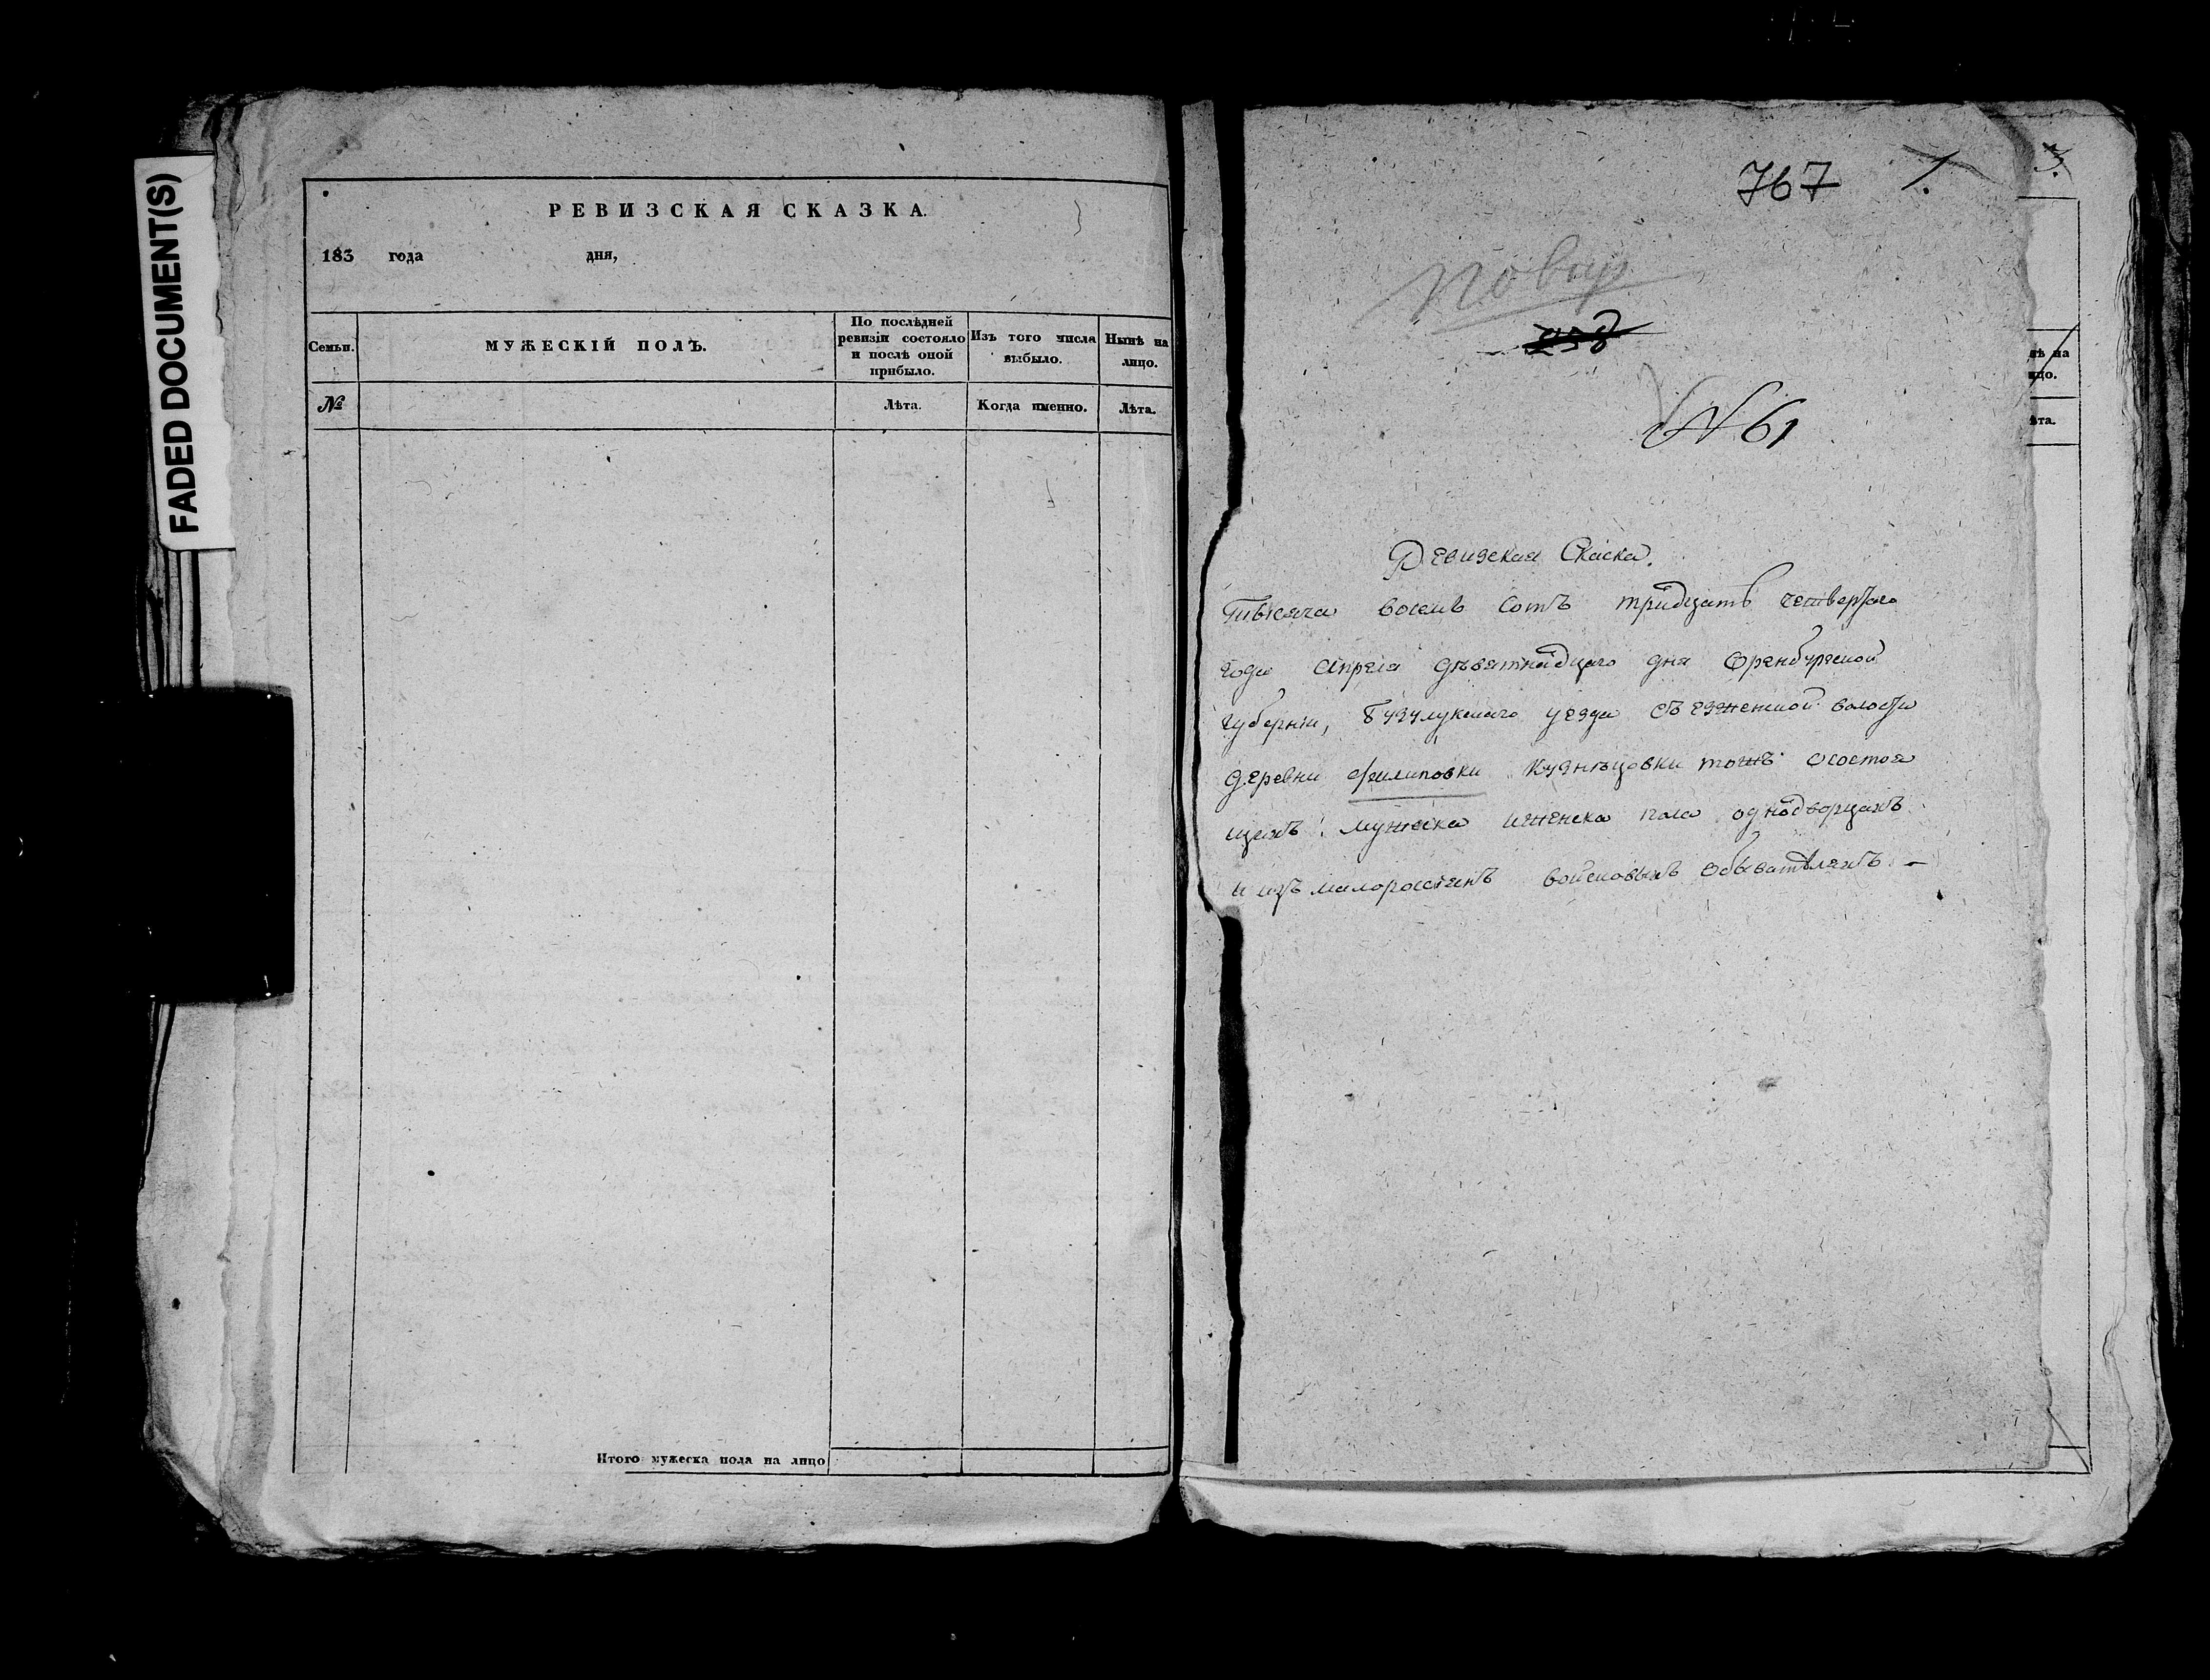 FADED DOCUMENT(S)
РЕВИЗСКАЯ СКАЗКА.
183 года дня,
Семьи.
МУЖЕСКІЙ ПОЛЪ.
По послѣдней ревизіи состояло и послѣ оной прибыло.
Изъ того числа выбыло.
Нынѣ на лицо.
№
Лѣта.
Когда именно.
Лѣта.
Итого мужеска пола на лицо
767 1.
3.
258
N 61
Ревизская Скаска.
Тысяча восемь сотъ тридцать четвертаго
года апреля дѣвятнадцаго дня Оренбургской
губерніи, Бузулукскаго уезда съезженской волости
деревни филиповки кузнѣцовки тожъ осостоя
щихъ мужеска иженска пола однодворцахъ
и изъ малороссіянъ войсковыхъ обывателяхъ -
нѣ на
ицо.
ѣта.